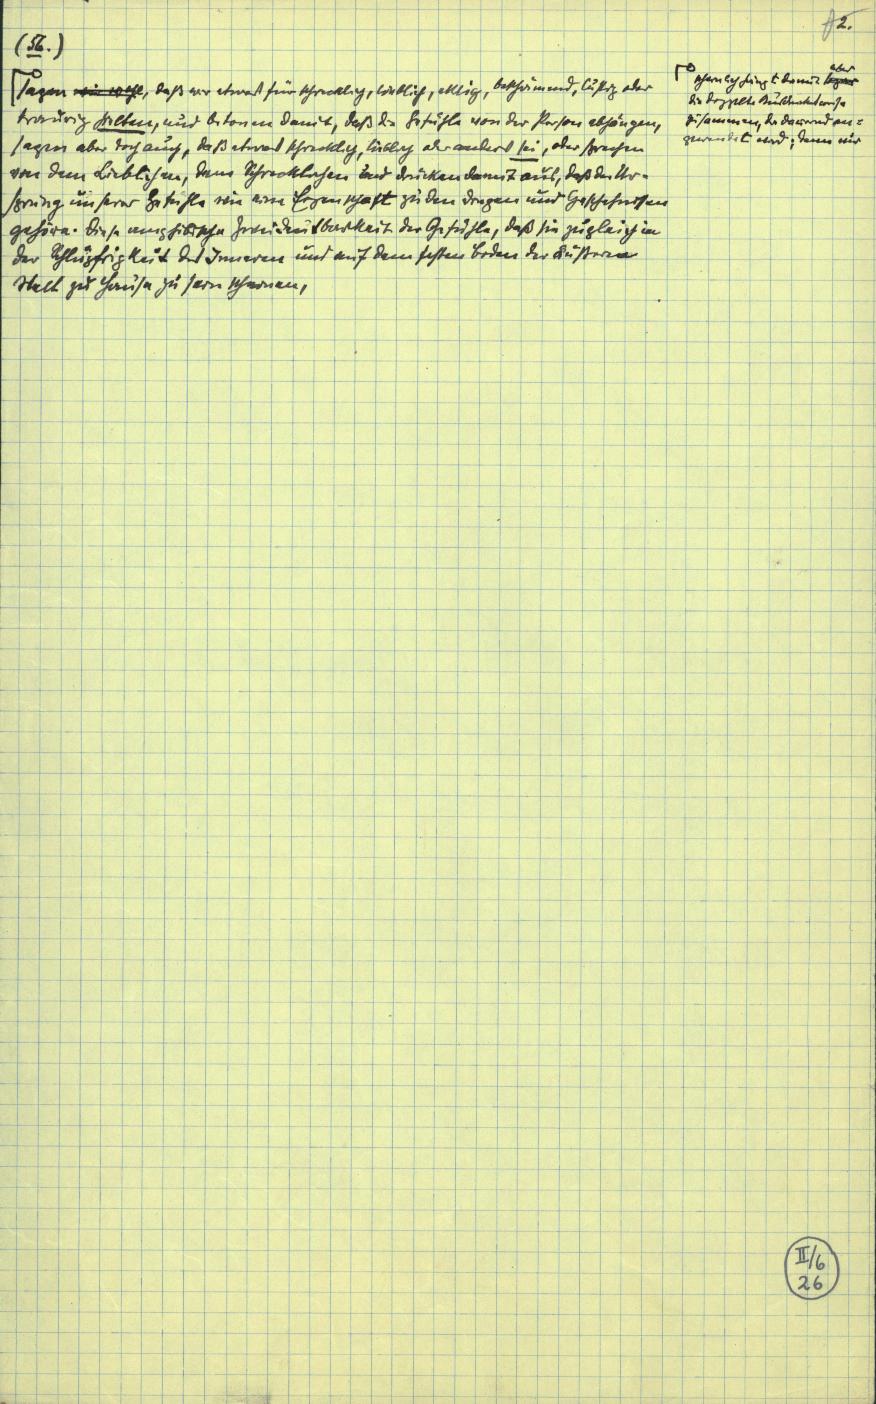 2.
(56.)
sagen wir wohl, daß wir etwas für schrecklich, lieblich, eklig, beschämend, lustig oder
traurig halten, und betonen damit, daß die Gefühle von der Person abhängen,
sagen aber doch auch, daß etwas schrecklich, lieblich oder anders sei, oder sprechen
von dem Lieblichen, dem Schrecklichen und drücken damit aus, daß der Ur-
sprung unserer Gefühle wie eine Eigenschaft zu den Dingen und Geschehnissen
gehöre. Diese amphibische Zweideutbarkeit der Gefühle, daß sie zugleich in
der Schlüpfrigkeit des Inneren und auf dem festen Boden der äußeren
Welt zu Hause zu sein scheinen,
aber
scheinlich hängt damit
die doppelte Ausdrucksweise
zusammen, die dauernd an-
gewendet wird; denn wir
II/6
26